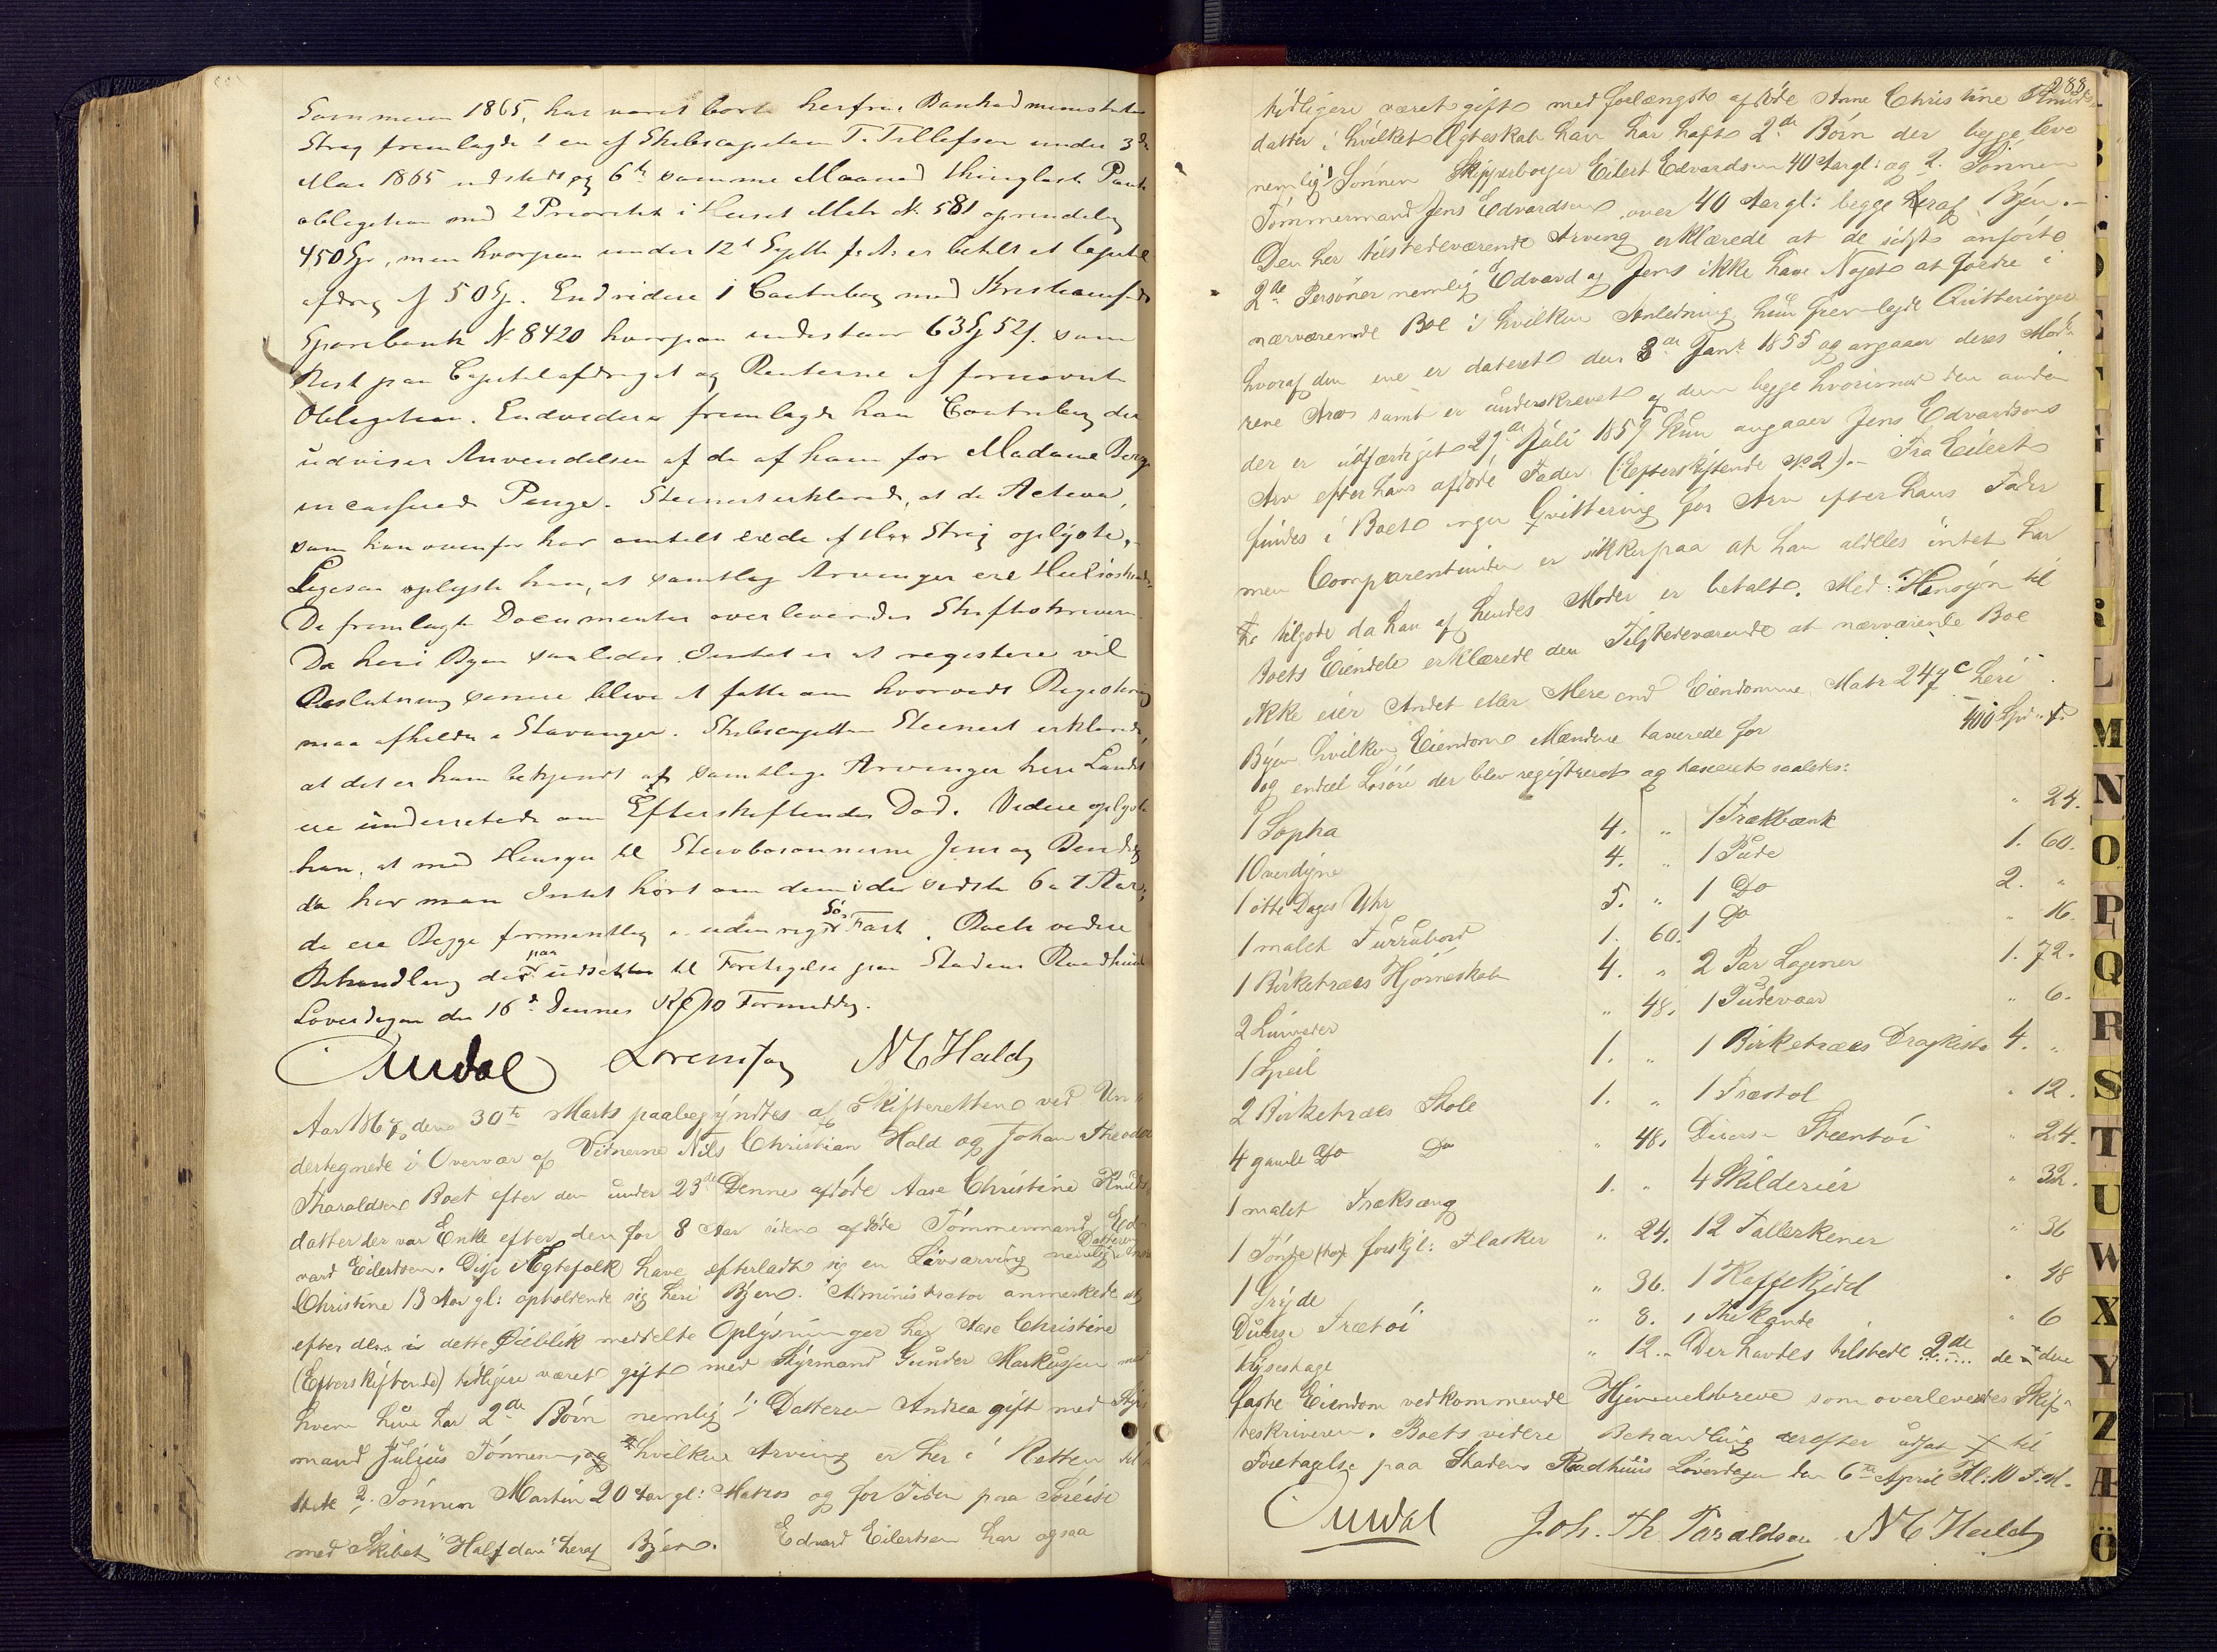 Sommeren 1865, har været borte herfra. Banhadministrator
Strag fremlagde 1 en af Skibscaptein T. Tellefsen under 3de
Mai 1865 udstedt og 6te samme Maaned thinglæst Pante
obligation med 2 Prioritet i Huset Matr. N. 581 oprindelig
450 Spd, men hvorpaa under 12te Septb. f. A. er betalt et Capital
afdrag af 50 Spd. Endvidere 1 Contrabog med Kristiansands
Sparebank N 8420 hvorpaa indestaar 63 Spd 52 s. som
Rest paa Capitalafdraget og Renterne af fornævnte
Obligation. Endvidere fremlagde han Contrabog der
udviser Anvendelsen af de af ham for Madame Berge
incasserede Penge. Steinert erklærede, at de Activa,
som han ovenfor har omtalt ere de af Hrr Strag oplyste,
Ligesaa oplyste han, at samtlige Arvinger ere Helsøskende.
De fremlagte Documenter overleveredes Skifteskriveren.
Da heri Byen saaledes Intet er at registrere vil
Beslutning senere blive at fatte om hvorvidt Registrering
maa afholdes i Stavanger. Skibscaptein Steinert erklærede,
at det er ham bekjendt at samtlige Arvinger here Landet
ere underrettede om Efterskiftendes Død. Videre oplyste
han, at med Hensyn til Stervbosønnerne Jens og Bendix
da har man Intet hørt om dem i de sidste 6 a 7 Aar;
de ere Begge formentlig i udenrigs Fart. Boets videre
Sø
Behandling derpaa udsattes til Foretagelse paa Stadens Raadhuus
Løverdagen den 16de Dennes Kl 10 Formiddag.
Audal Lorentsen N C Hald
Aar 1867, den 30te Marts paabegyndtes af Skifteretten ved Un-
dertegnede i Overvær af Vidnerne Nils Christian Hald og Johan Theodor
Tharaldsen Boet efter den under 23de Dennes afdøde Aase Christine Knuds-
datter der var Enke efter den for 8 Aar siden afdøde Tømmermand Ed-
vard Eilertsen. Disse Ægtefolk have efterladt sig en Livsarving nemlig Datteren
Christine 13 Aar gl: opholdende sig heri Byen. Administrator anmerkede at
efter den i dette Øieblik meddelte Oplysninger har Aase Christine
(Efterskiftende) tidligere været gift med Styrmand Gunder Markussen med
hvem hun har 2de Børn nemlig 1. Datteren Andrea gift med Styr-
mand Julius Tønnesen, og hvilken Arving er her i Retten til
stede 2. Sønnen Martin 20 Aar gl: Matros og for Tiden paa Søreise
med Skibet "Halfdan" heraf Byen. Edvard Eilertsen har ogsaa
288
tidligere været gift med forlængst afdøde Anne Christine Knuds-
datter i hvilket Ægteskab han har haft 2de Børn der begge leve
nemlig 1 Sønnen Skipperborger Eilert Edvardsen 40 Aar gl: og 2. Sønnen
Tømmermand Jens Edvardsen over 40 Aar gl: begge heraf Byen.-
Den her tilstedeværende Arving erklærede at de sidst anførte
2de Personer nemlig Edvard og Jens ikke have Noget at fordre i
nærværende Boe i hvilken Anledning hun frem-lagde Qvitteringer
hvoraf den ene er dateret den 8de Janr 1855 og angaaer deres Mød-
rene Arv samt er underskrevet af dem begge hvorimod den anden
der er udfærdiget 27de Juli 1859 kun angaaer Jens Edvardsens
Arv efter hans afdøde Fader (Efterskiftende op. 2).- Fra Eilert
findes i Boet ingen Qvittering for Arv efter hans Fader
men Comparentinden er sikker paa at han aldeles intet har
tilgode da han af hendes Moder er betalt. Med Hensyn til
Boets Eiendele erklærede den Tilstedeværende at nærværende Boe
ikke eier Andet eller Mere end Eiendomme Matr 247c heri
Byen hvilken Eiendom Mændene taxerede for 400 Spd " s
og endeel Løsøre der blev registreret og taxeret saaledes:
1 Sopha 4. " 1 Trækbænk " 24.
1 Overdyne 4. " 1 Pude 1. 60.
1 otte Dages Uhr 5. " 1 Do 2. "
1 malet Furrubord 1. 60. 1 Do " 16.
1 Birketræes Hjørneskab 4. " 2 Par Lagener 1. 72.
2 " 48. 1 Pudevaar " 6.
1 Speil 1. " 1 Birketræes Dragkiste 4. "
2 Birketræes Stole 1. " 1 Træstol " 12.
4 gamle Do Do " 48. Diverse Steentøi " 24.
1 malet Træksæng 1. " 4 Skilderier " 32.
1 Tønde forskjl: Flasker " 24. 12 Tallerkener " 36
1 Gryde " 36. 1 Kaffekjedel " 48
Diverse Trætøi " 8. 1 Thekande " 6
Lysestage " 12. Der havdes tilstede 2de de den
faste Eiendom vedkommende Hjemmelsbreve som overleveredes Skif-
teskriveren. Boets videre Behandling derefter udsat til
Foretagelse paa Stadens Raadhuus Løverdagen den 6te April Kl: 10 F.M.
Audal Joh. Th. Taraldsen N C Hald
M
N
O
P
Q
R
S
T
U
W
X
Y
Z
Æ
Ö